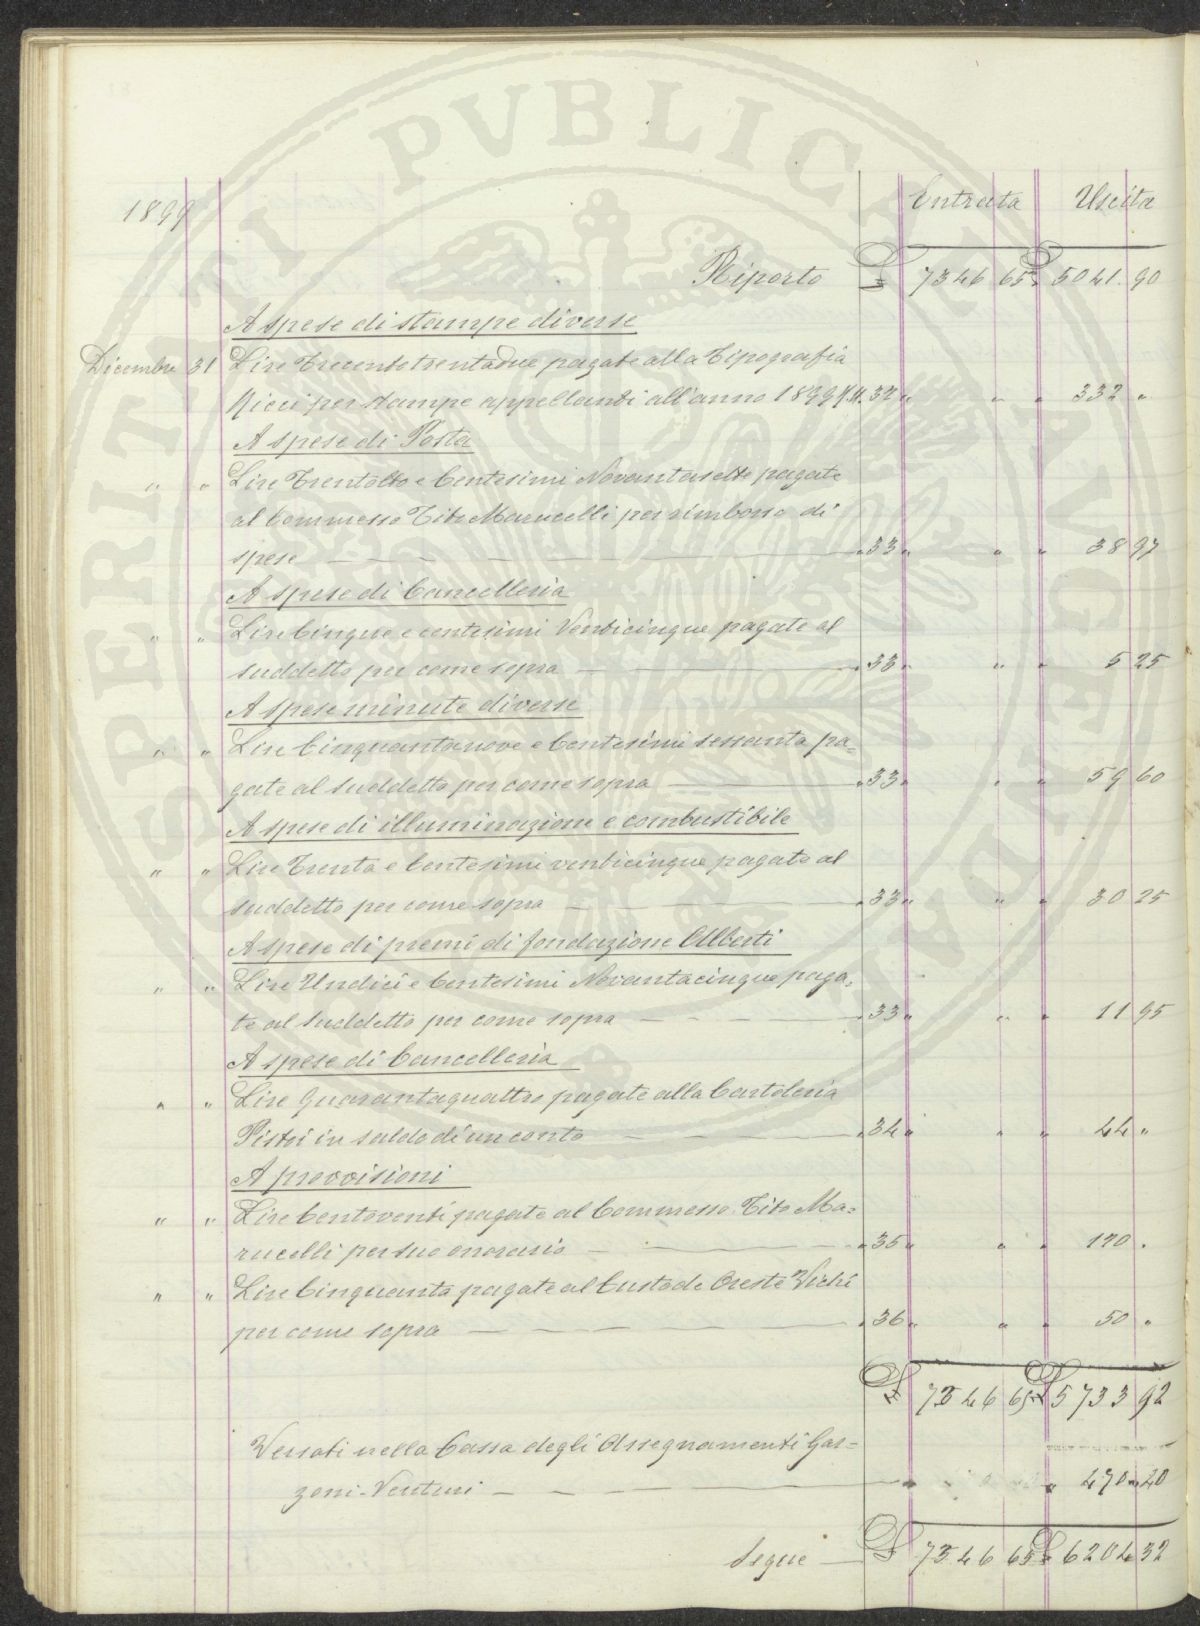 PVBLICAE
PROSPERITATI
AVGENDAE
Entrata Uscita
1899
Riporto £ 7346 65 £ 5041 90
A spese di stampe diverse
Dicembre 31 Lire Trecentotrentadue pagate alla Tipografia
Ricci per stampe appellanti all'anno 1899 M. 32 " " " 332 "
A spese di Posta
" " Lire Trentotto e Centesimi Novantasette pagate
al Commesso Tito Marucelli per rimborso di
spese " 33 " " " 38 97
A spese di Cancelleria
" " Lire Cinque e centesimi Venticinque pagate al
suddetto per come sopra " 33 " " " 5 25
A spese minute diverse
" " Lire Cinquantanove e Centesimi sessanta pa=
gate al suddetto per come sopra " 33 " " " 59 60
A spese di illuminazione e combustibile
" " Lire Trenta e Centesimi venticinque pagate al
suddetto per come sopra " 33 " " " 30 25
A spese di premi di fondazione Alberti
" " Lire Undici e Centesimi Novantacinque paga=
te al suddetto per come sopra " 33 " " " 11 95
A spese di Cancelleria
" " Lire Quarantaquattro pagate alla Cartoleria
Pistoi in saldo di un conto " 34 " " " 44 "
A provvisioni
" " Lire Centoventi pagate al Commesso Tito Ma=
rucelli per suo onorario " 35 " " " 120 "
" " Lire Cinquanta pagate al Custode Oreste Vichi
per come sopra " 36 " " " 50 "
£ 7346 65 £ 5733 92
Versati nella Cassa degli Assegnamenti Gar=
zoni-Venturi " " 470 40
Segue £ 7346 65 £ 6204 32